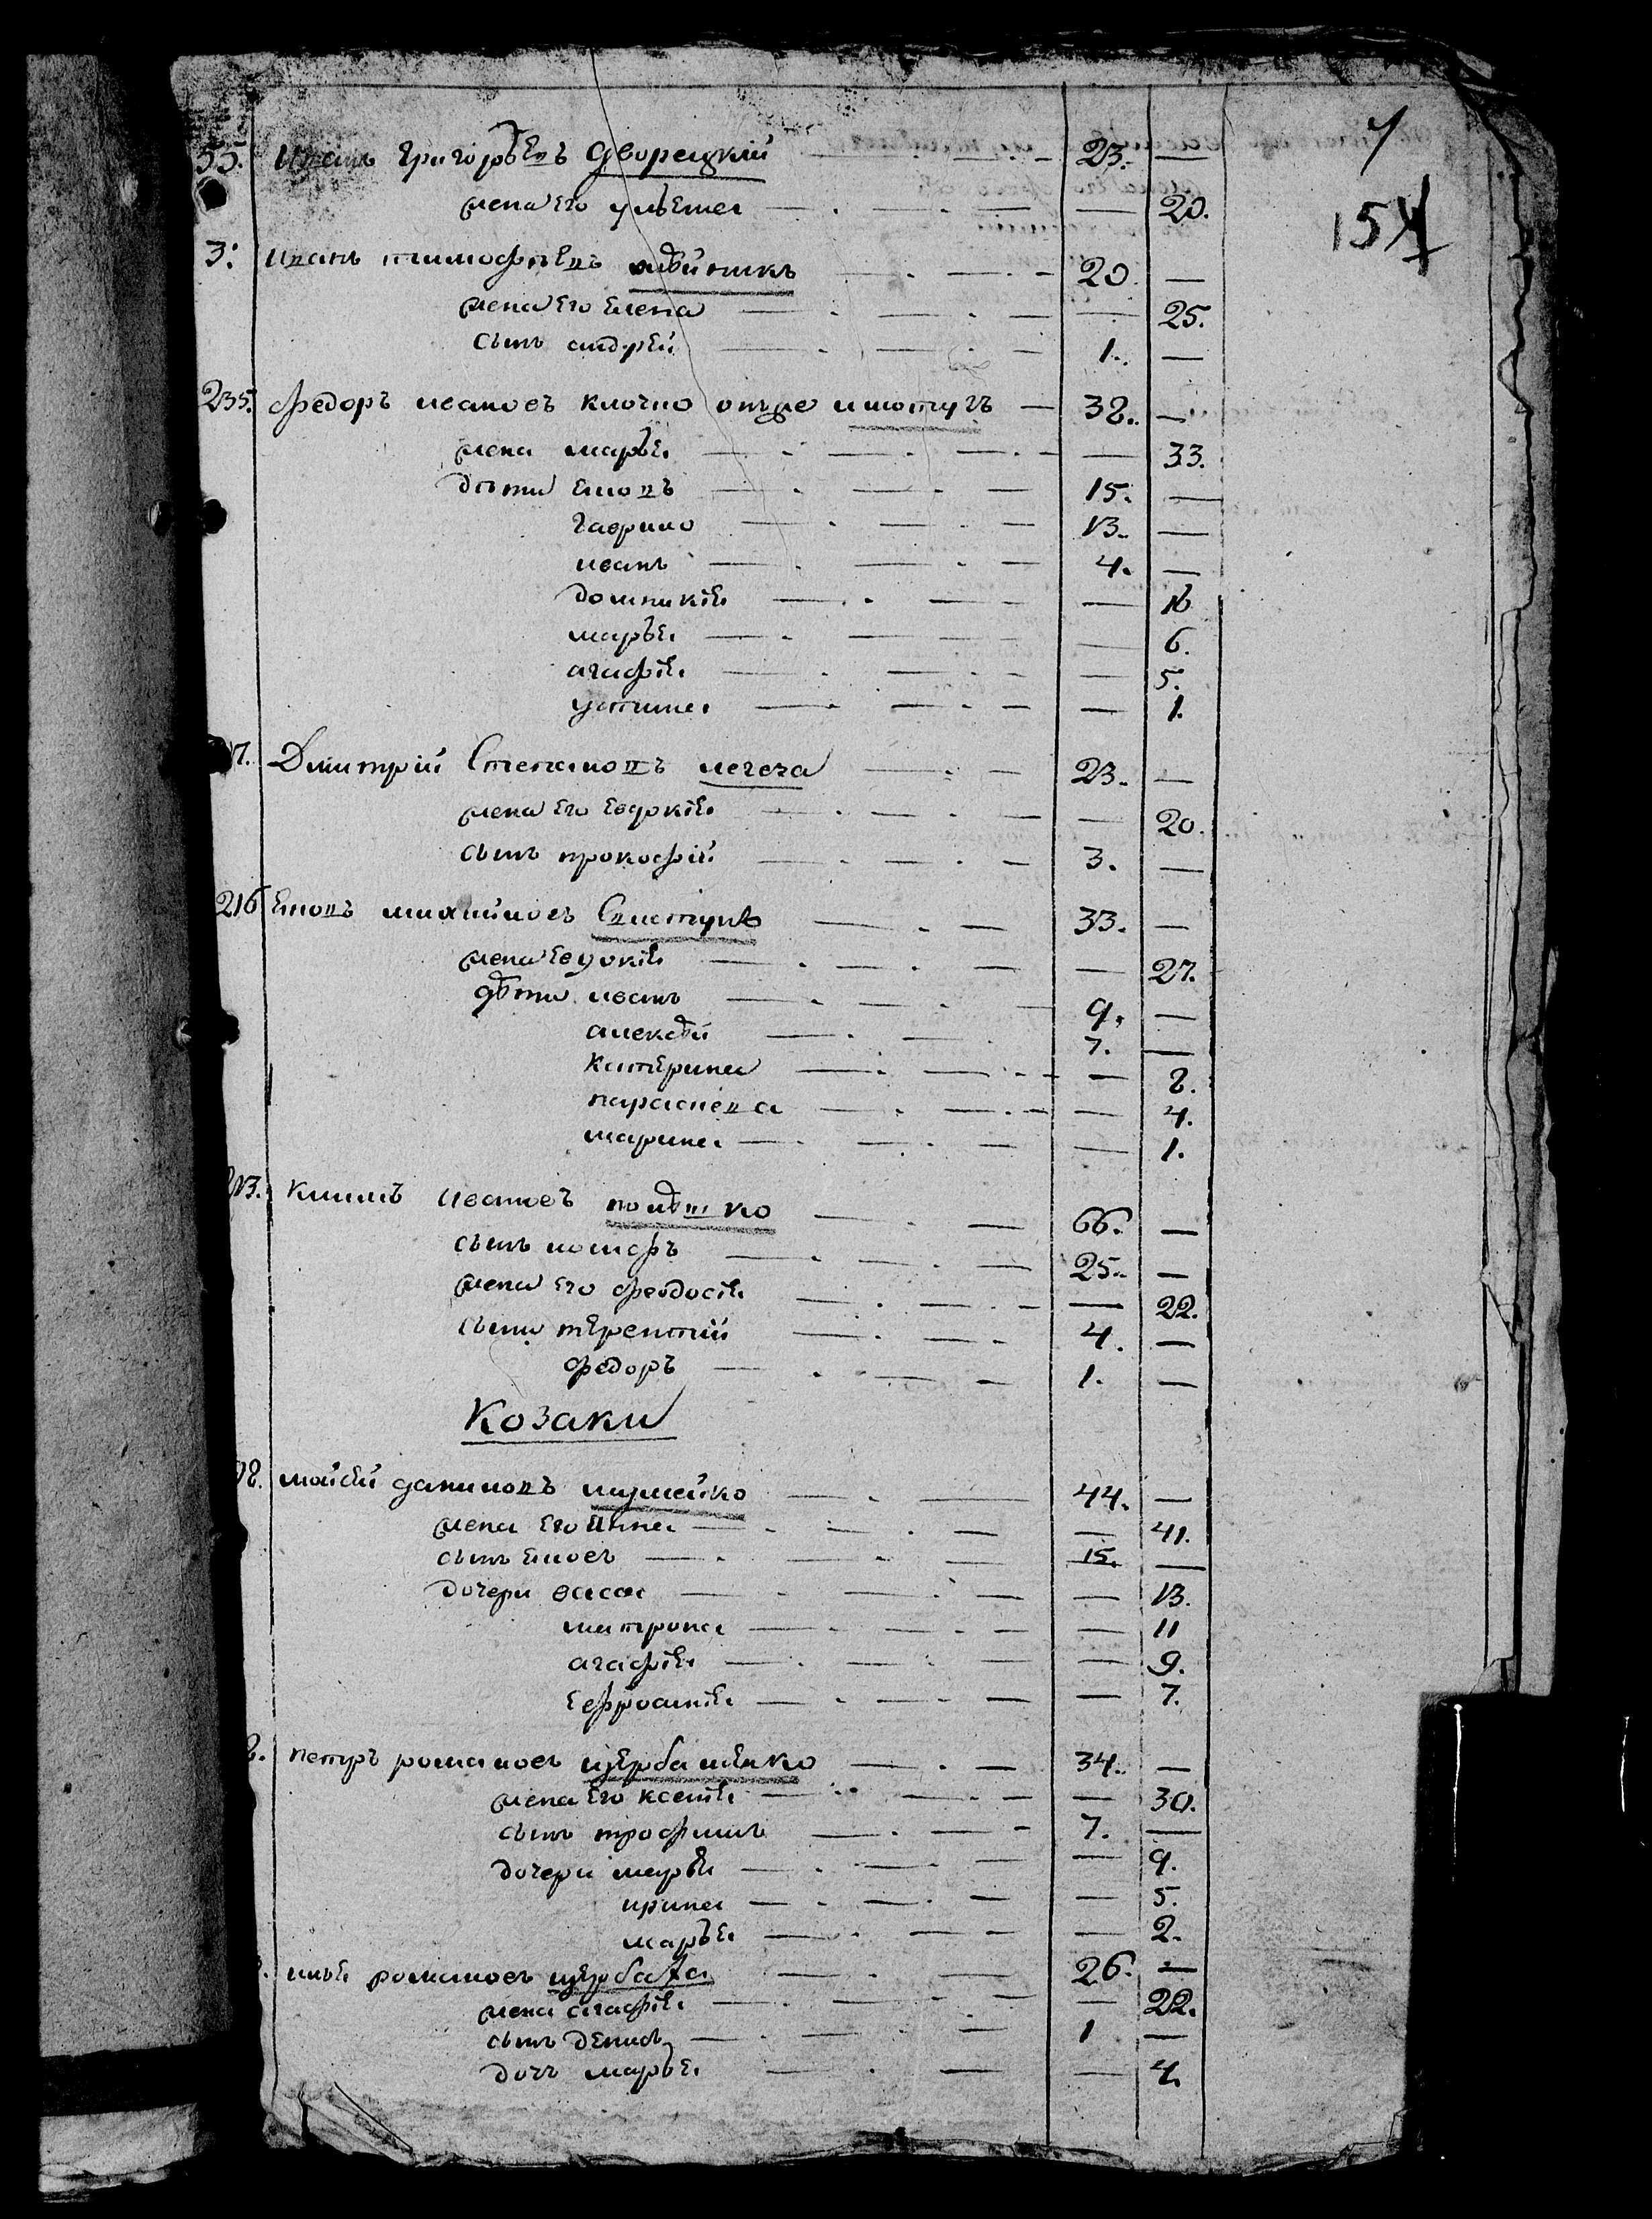 7
154
55. Иванъ Григорьевъ Дворецкій — 23. —
жена Его ульяна — 20.
3. Иванъ тимофѣевъ — 20. —
жена Его Елена — 25.
сынъ андрей 1. —
235. Федоръ ивановъ онъже — 38. —
жена марья — 33.
дѣти — 15. —
гаврило 13. —
иванъ 4. —
домникія — 16
марья — 6.
агафія — 5.
устинья — 1.
7. Дмитрій Степановъ легеза 23. —
жена Его Евдокія — 20.
сынъ прокофій 3. —
216 михайловъ Свистунъ 33. —
жена Евдокія — 27.
дѣти иванъ 9. —
алексѣй 7. —
Катерина — 8.
параскева — 4.
марина — 1.
213. климъ ивановъ 66. —
сынъ 25. —
жена Его феодосія — 22.
сыны терентій 4. —
федоръ 1. —
Козаки
98. мойсей даниловъ 44. —
жена Его Анна — 41.
сынъ 15. —
дочери васса — 13.
матрона — 11
агафія — 9.
Ефросинія — 7.
петръ романовъ щербаченко 34. —
жена Его ксенія — 30.
сынъ трофимъ 7. —
дочери марья — 9.
ирина — 5.
марья — 2.
илья романовъ щербатаго 26. —
жена агафія — 22.
сынъ Денисъ 1 —
дочь марья — 4.